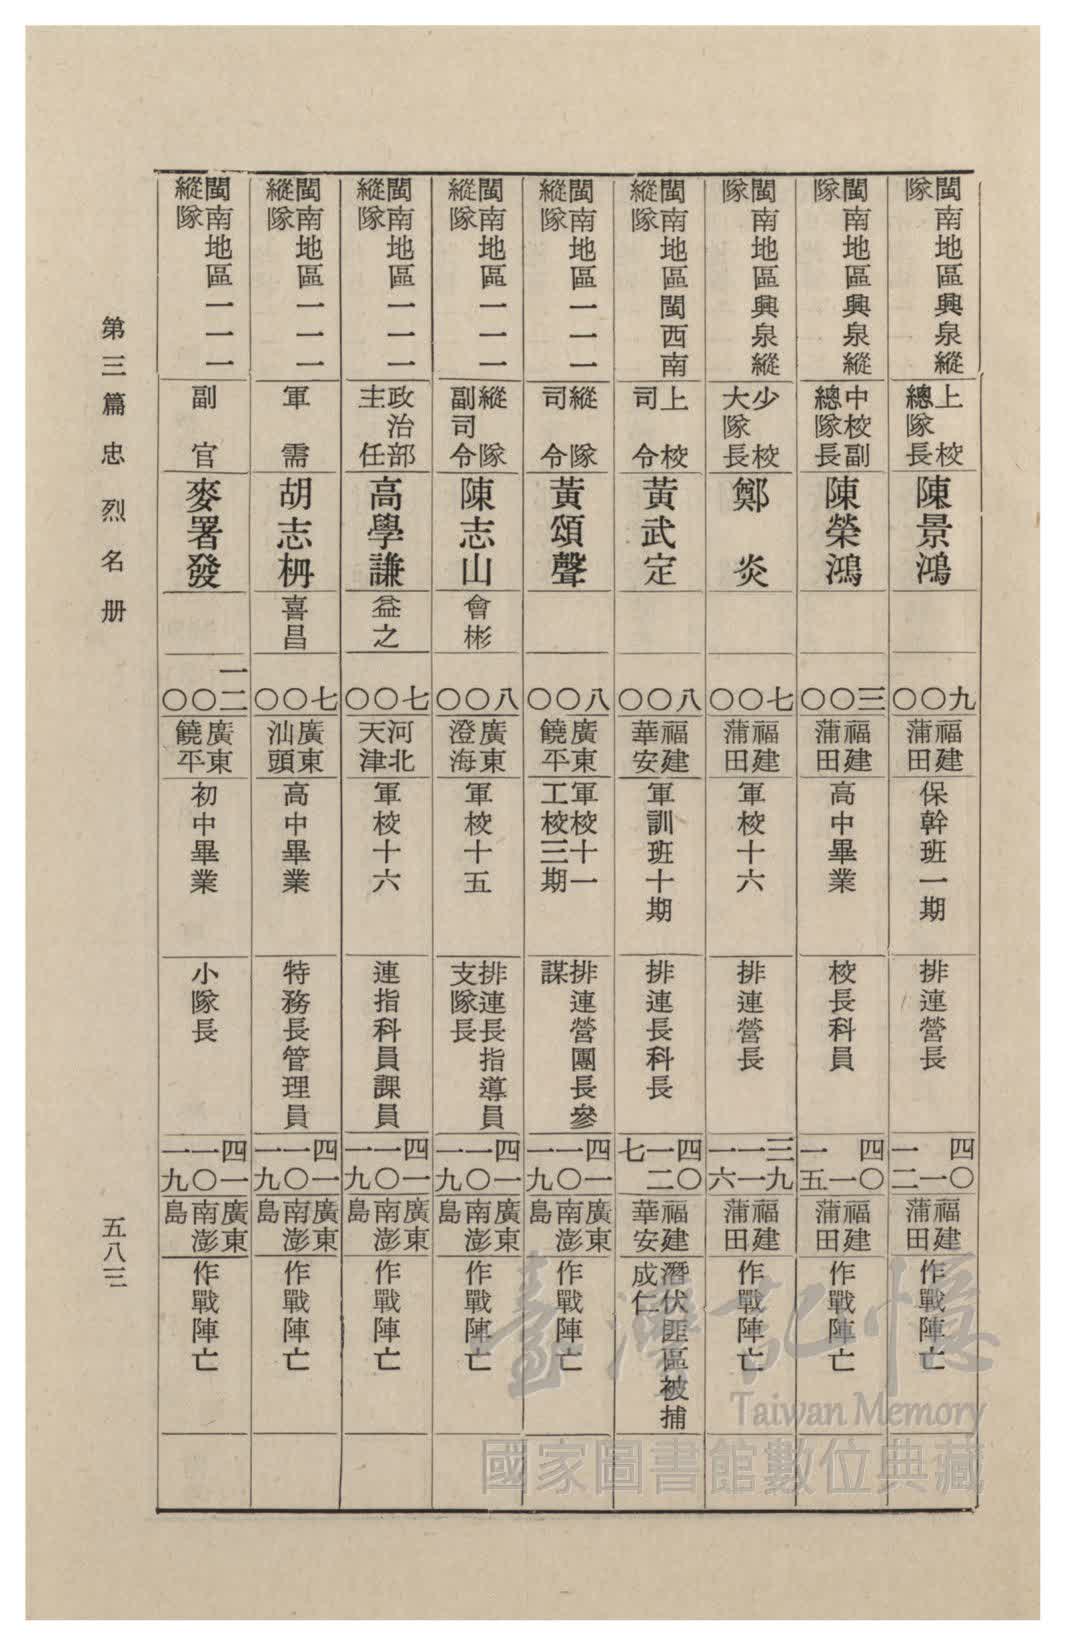 閩南地區興泉縱隊 上校總隊長 陳景鴻 九〇〇 福建蒲田 保幹班一期 排連營長 四〇一一二 福建蒲田 作戰陣亡
閩南地區興泉縱隊 中校副總隊長 陳榮鴻 三〇〇 福建蒲田 高中畢業 校長科員 四〇一一五 福建蒲田 作戰陣亡
閩南地區興泉縱隊 少校大隊長 鄭炎 七〇〇 福建蒲田 軍校十六 排連營長 三九一一一六 福建蒲田 作戰陣亡
閩南地區閩西南縱隊 上校司令 黃武定 八〇〇 福建華安 軍訓班十期 排連長科長 四〇一二七 福建華安 潛伏匪區被捕成仁
閩南地區一一一縱隊 縱隊司令 黃頌聲 八〇〇 廣東饒平 軍校十一工校三期 排連營團長參謀 四一一〇一九 廣東南澎島 作戰陣亡
閩南地區一一一縱隊 縱隊副司令 陳志山 會彬 八〇〇 廣東澄海 軍校十五 排連長指導員支隊長 四一一〇一九 廣東南澎島 作戰陣亡
閩南地區一一一縱隊 政治部主任 高學謙 益之 七〇〇 河北天津 軍校十六 連指科員課員 四一一〇一九 廣東南澎島 作戰陣亡
閩南地區一一一縱隊 軍需 胡志枬 喜昌 七〇〇 廣東汕頭 高中畢業 特務長管理員 四一一〇一九 廣東南澎島 作戰陣亡
閩南地區一一一縱隊 副官 麥署發 一二〇〇 廣東饒平 初中畢業 小隊長 四一一〇一九 廣東南澎島 作戰陣亡
第三篇 忠烈名册
五八三
臺灣記憶
Taiwan Memory
國家圖書館數位典藏